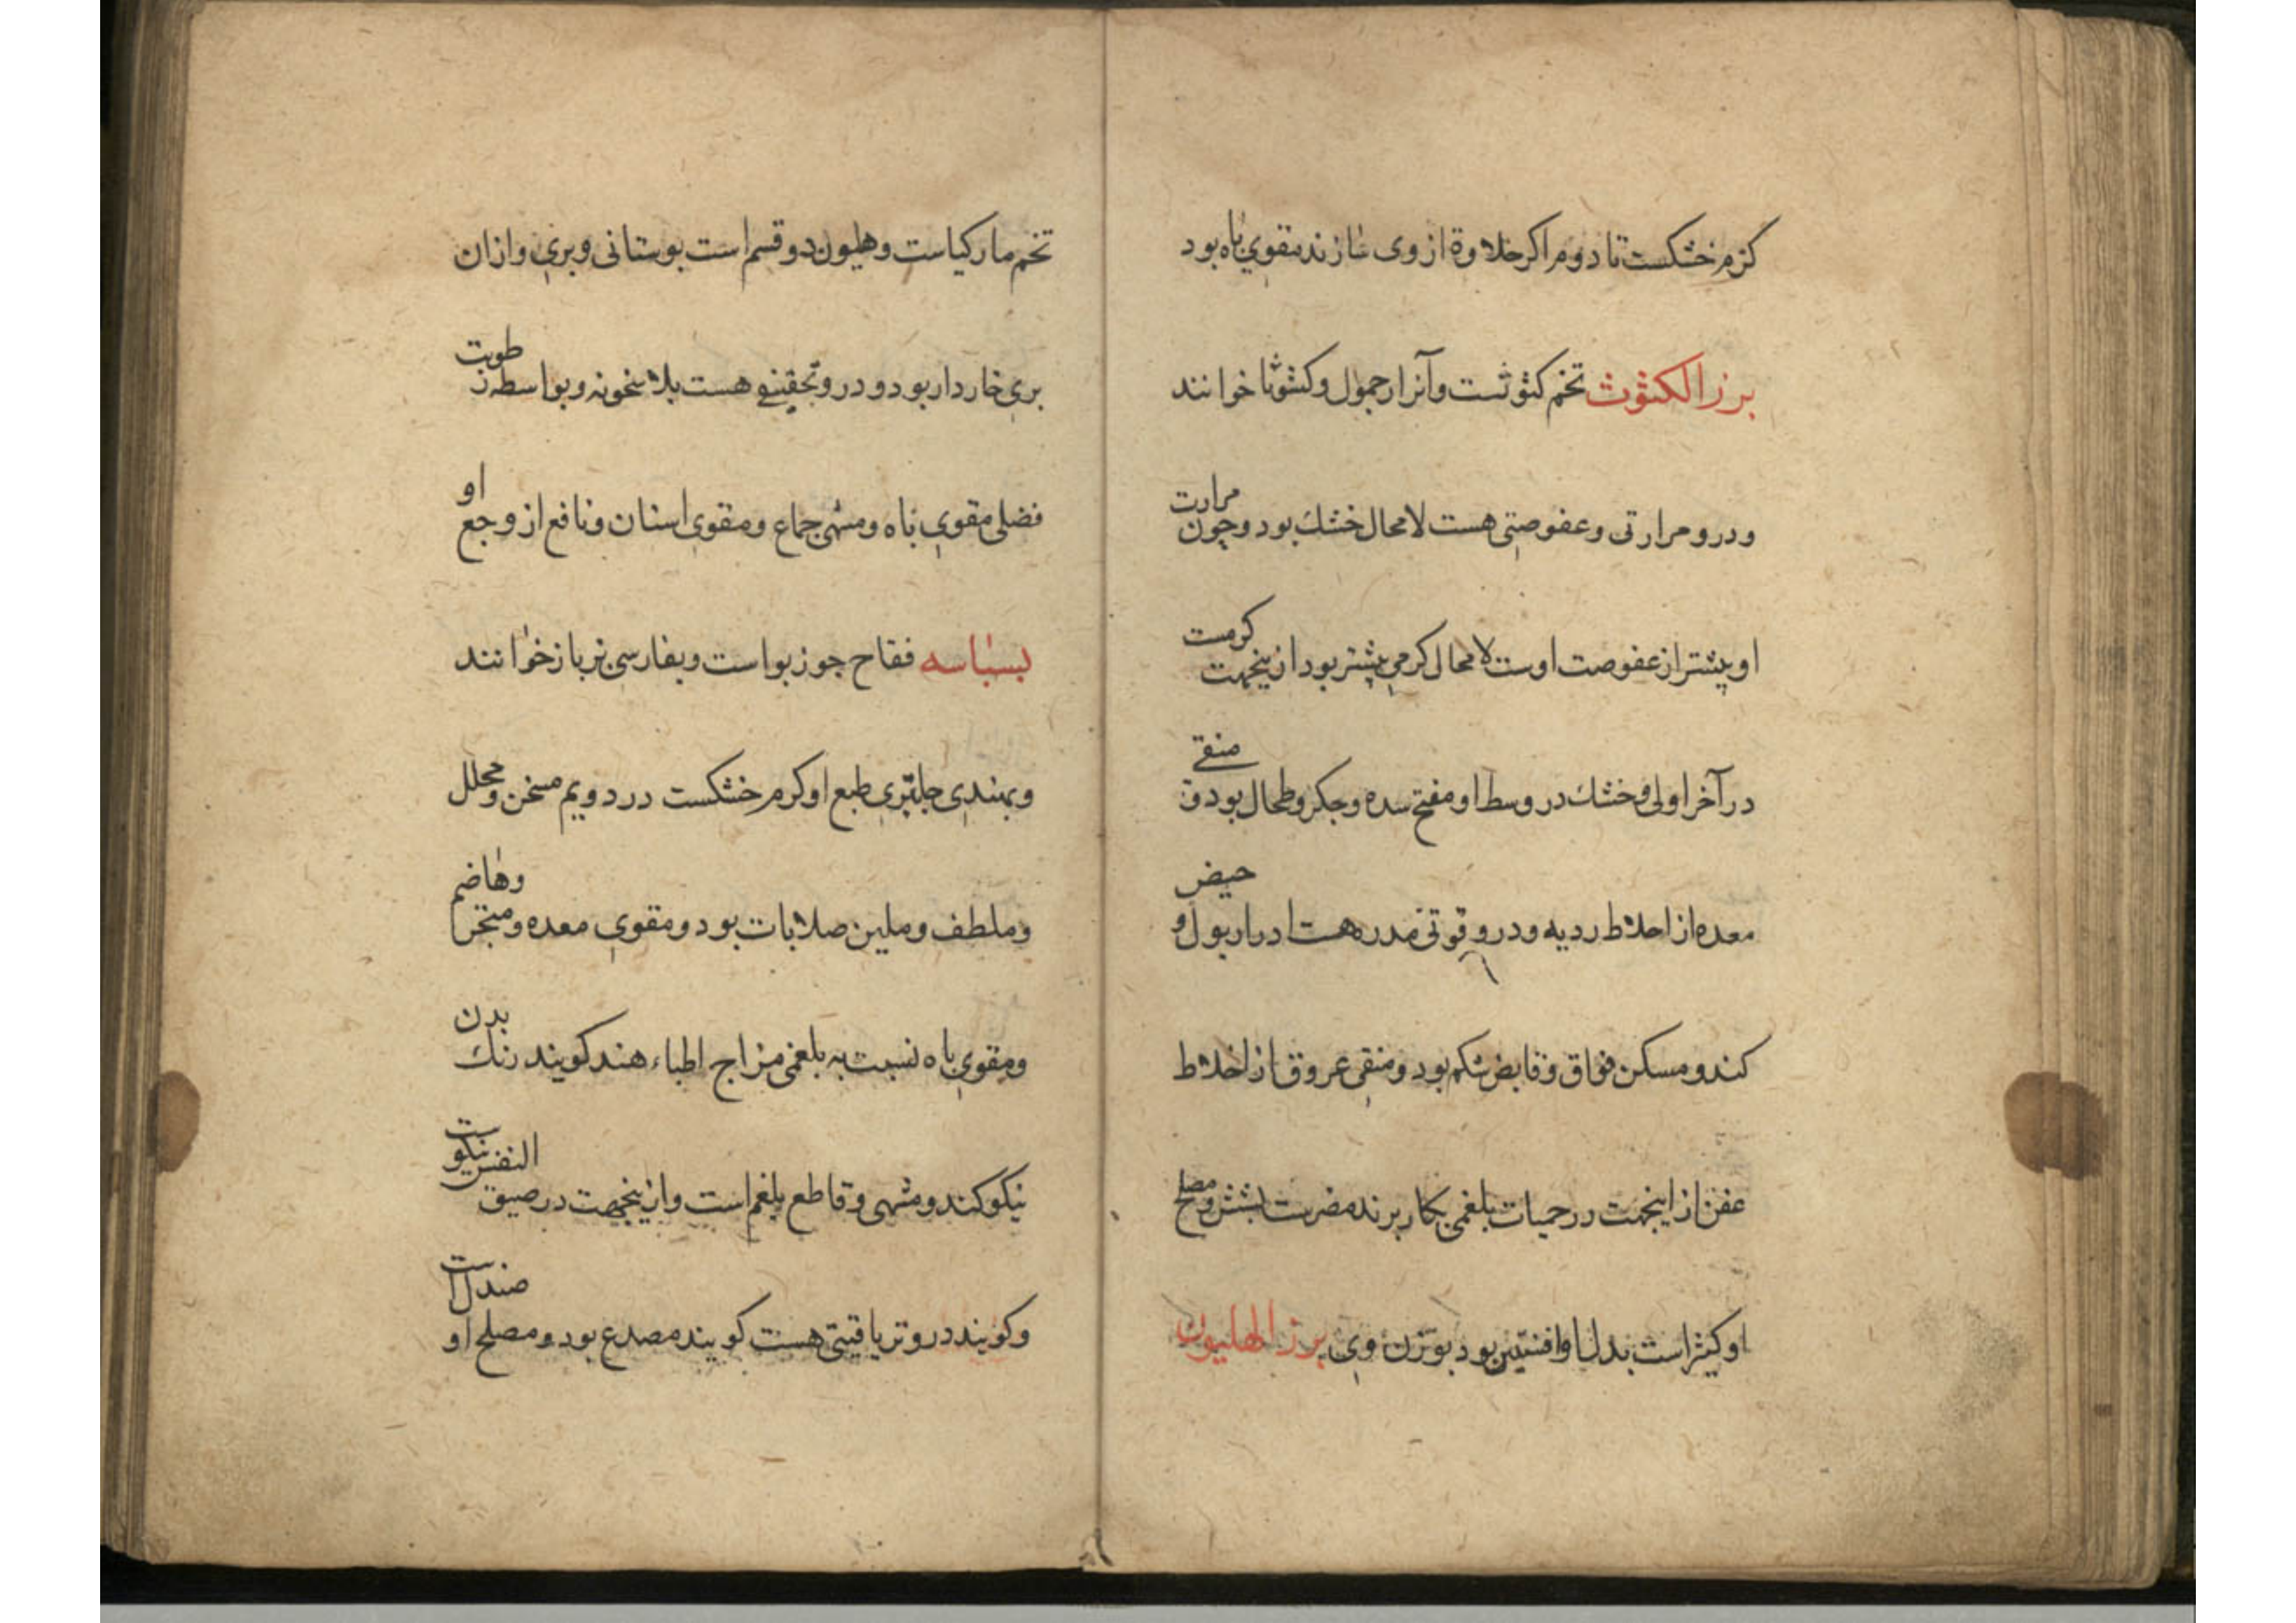 كرم خشكست تا دوم اكر حلاوة از وى سازند مقوي باه بود
بزر الكثوث تخم كثوثست وآنرا حمول وكشوثا خوانند
ودرو مرارتى وعفوصتى هست لامحال خشك بود وچون مرارت
او پيشتر از عفوصت اوست لامحال كرمي پيشتر بود ازينجهت كرمست
در آخر اولى وخشك در وسط او مفتح سده وجكر وطحال بود و منقى
معده از اخلاط رديه ودرو قوتى مدره هست ادرار بول و حيض
كند ومسكن فواق وقابض شكم بود ومنقى عروق از اخلاط
عفن از اينجهت در حميات بلغمى بكار برند مضرست بشش ومصلح
او كثيرا است بدل او افسنتين بود بوزن وى بزر الهليون
تخم ماركياست وهليون دو قسم است بوستانى وبري وازان
بري خاردار بود ودرو تجفيفى هست بلا سخونه وبواسطه رطوبت
فضلى مقوي باه ومشهى جماع ومقوى اسنان ونافع از وجع او
بسباسه فقاح جوز بواست وبفارسى بزباز خوانند
وبهندى جلپترى طبع او كرم خشكست در دويم مسخن ومحلل
وملطف وملين صلابات بود ومقوي معده وهاضم
ومقوي باه نسبت به بلغمى مزاج اطباء هند كويند رنك بدن
نيكو كند ومشهى وقاطع بلغم است وازينجهت در ضيق النفس نيكوست
وكويند درو ترياقيتى هست كويند مصدع بود ومصلح او صندل است